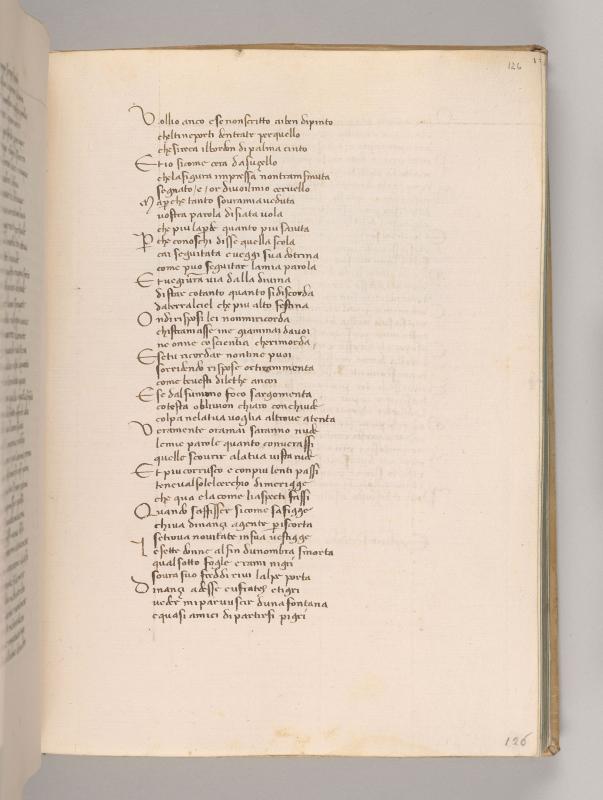 126
Vollio anco e se non scritto al ben dipinto
chel tine porti dentrate per quello
che si reca il bordon di palma cinto
Et io si come cera da sugello
che la figura impressa non trasmuta
segnato e or da voi lo mio cervello
Ma perche tanto soura mia veduta
vostra parola disiata vola
che piu la perde quanto piu saiuta
Perche conoschi disse quella scola
cai seguitata e veggi sua dotrina
come puo seguitar la mia parola
Et veggi vostra via dalla divina
distar cotanto quanto si discorda
da terra l ciel che piu alto festina
Ondi risposi lei non mi ricorda
chi straniasse me giammai da voi
ne onne coscientia che rimorda
E se tu ricordar non tine puoi
sorridendo rispose or ti rammenta
come bevesti di lethe ancoi
E se dal fummo foco sargomenta
cotesta oblivion chiaro conchiude
colpa ne la tua voglia altrove atenta
Veramente oramai saranno nude
le mie parole quanto converrassi
quelle scovrir ala tua vista rude
Et piu corrusco e con piu lenti passi
teneva l sole l cerchio di merigge
che qua e la come li aspecti fassi
Quando saffisser si come saffigge
chi va dinanzi a gente per iscorta
se trova novitate in sua vestigge
Le sette donne al fin dunombra smorta
qual sotto fogle e rami nigri
soura suo freddi rivi lalpe porta
Dinanzi adesse eufrates e tigri
veder mi parve uscir duna fontana
e quasi amici dipartirsi pigri
126